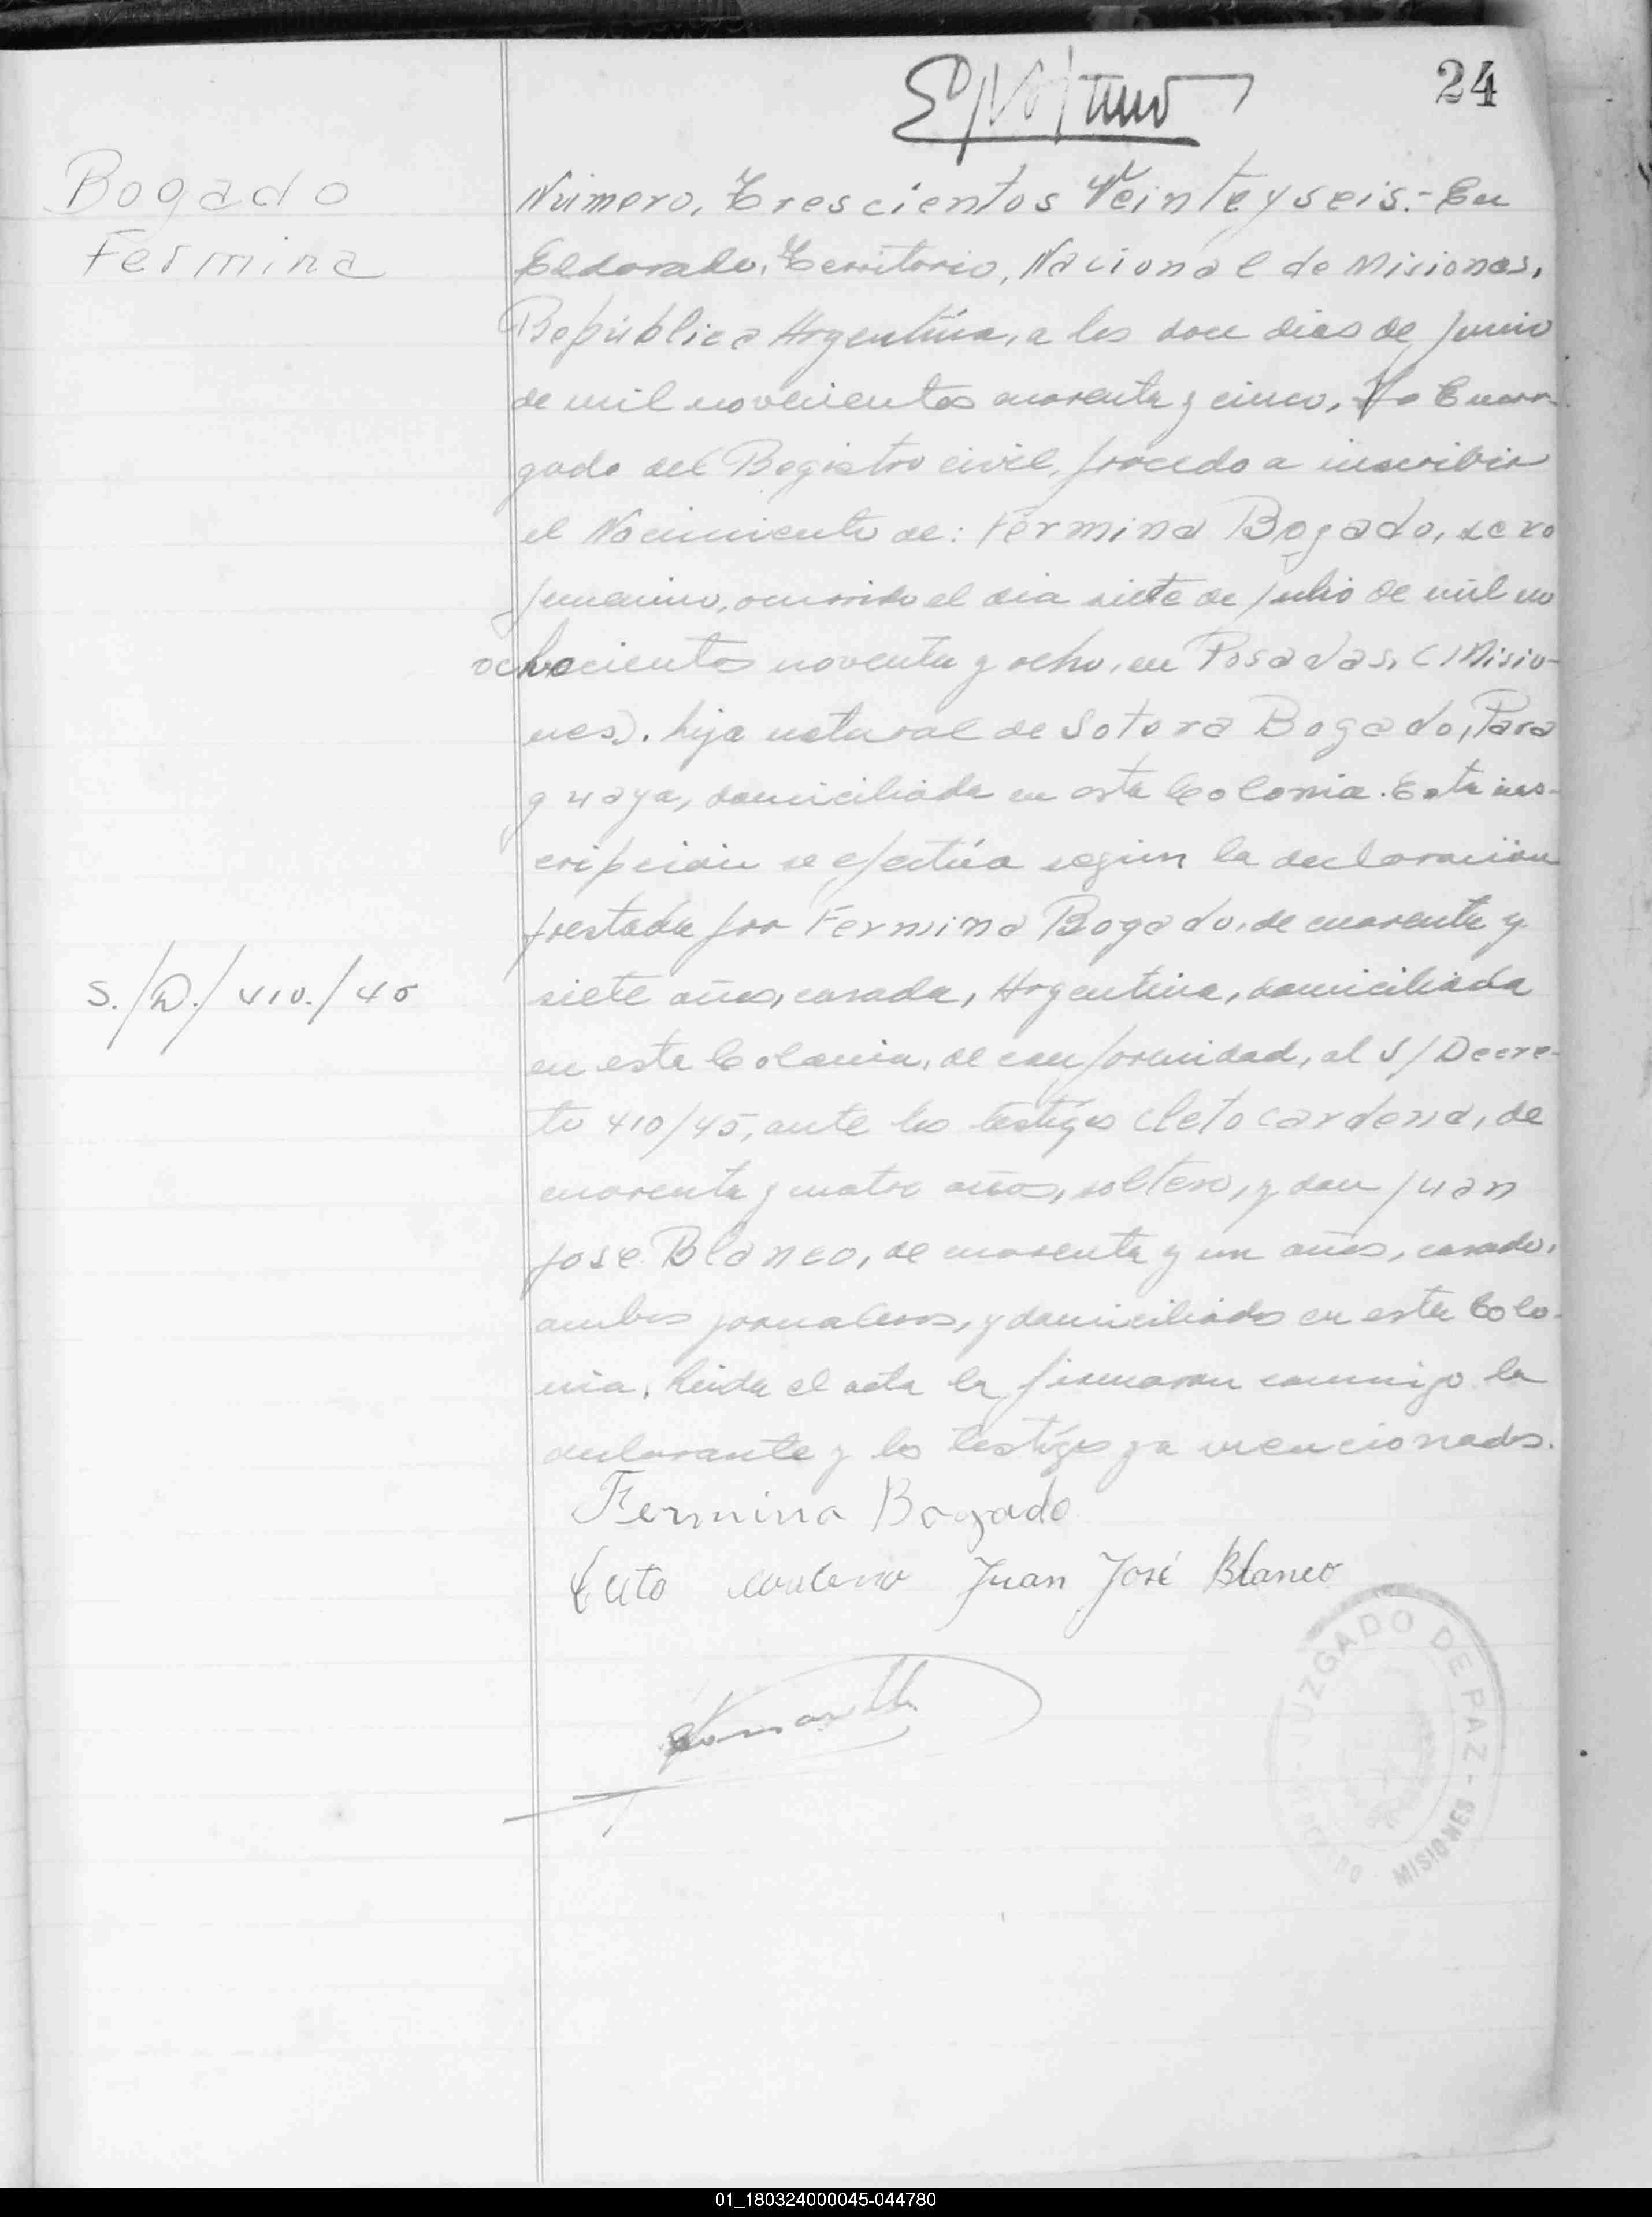 24
Bogado
Fermina
Número, Trescientos Veinte y seis.- En
Eldorado, Territorio, Nacional de Misiones,
República Argentina, a los doce dias de Junio
de mil novecientos cuarenta y cinco, Yo Encar-
gado del Registro civil, procedo a inscribir
el Nacimiento de: Fermina Bogado, sexo
femenino, ocurrido el dia siete de Julio de mil no
ochocientos noventa y ocho, en Posadas, (Misio-
nes). hija natural de Sotera Bogado, Para
guaya, domiciliada en esta Colonia. Esta ins-
cripción se efectúa según la declaración
prestada por Fermina Bogado, de cuarenta y
siete años, casada, Argentina, domiciliada
S./D./410./45
en esta Colonia, de conformidad, al S/Decre-
to 410/45, ante los testigos Cleto Cardena, de
cuarenta y cuatro años, soltero, y don Juan
Jose Blanco, de cuarenta y un años, casado,
ambos jornaleros, y domiciliados en esta Colo-
nia, leida el acta la firmaron conmigo la
declarante y los testigos ya mencionados.
Fermina Bogado
Juan José Blanco
JUZGADO DE PAZ - MISIONES
01_180324000045-044780